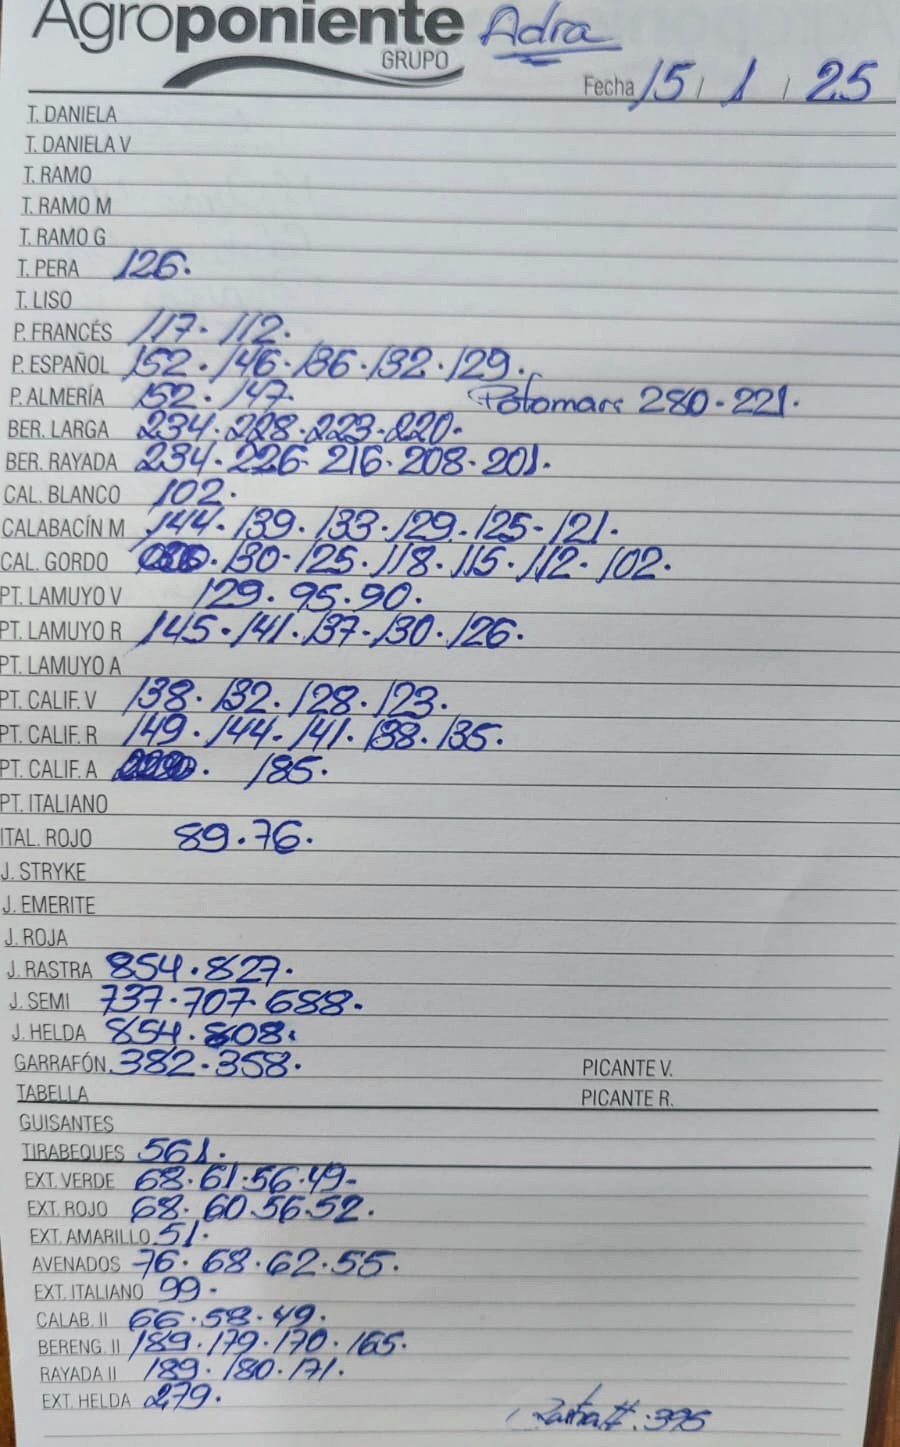 Agroponiente Adra
GRUPO
Fecha 15 / 1 / 25
T. DANIELA
T. DANIELA V
T. RAMO
T. RAMO M
T. RAMO G
T. PERA 126.
T. LISO
P. FRANCÉS 117. 112.
P. ESPAÑOL 152. 146. 136. 132. 129.
P. ALMERÍA 152. 147. 280-221.
BER. LARGA 234. 228. 223. 220.
BER. RAYADA 234. 226. 216. 208. 201.
CAL. BLANCO 102.
CALABACÍN M 144. 139. 133. 129. 125- 121.
CAL. GORDO 130- 125. 118. 115. 112. 102.
PT. LAMUYO V 129. 95. 90.
PT. LAMUYO R 145. 141. 137- 130. 126.
PT. LAMUYO A
PT. CALIF. V 138. 132. 128. 123.
PT. CALIF. R 149. 144- 141. 138. 135.
PT. CALIF. A 185.
PT. ITALIANO
ITAL. ROJO 89. 76.
J. STRYKE
J. EMERITE
J. ROJA
J. RASTRA 854. 827.
J. SEMI 737. 707. 688.
J. HELDA 854. 808.
GARRAFÓN 382. 358. PICANTE V.
TABELLA PICANTE R.
GUISANTES
TIRABEQUES 561.
EXT. VERDE 68. 61. 56. 49-
EXT. ROJO 68. 60. 56. 52.
EXT. AMARILLO 51.
AVENADOS 76. 68. 62. 55.
EXT. ITALIANO 99.
CALAB. II 66. 58. 49.
BERENG. II 189. 179. 170. 165.
RAYADA II 189. 180. 171.
EXT. HELDA 279.
: 395